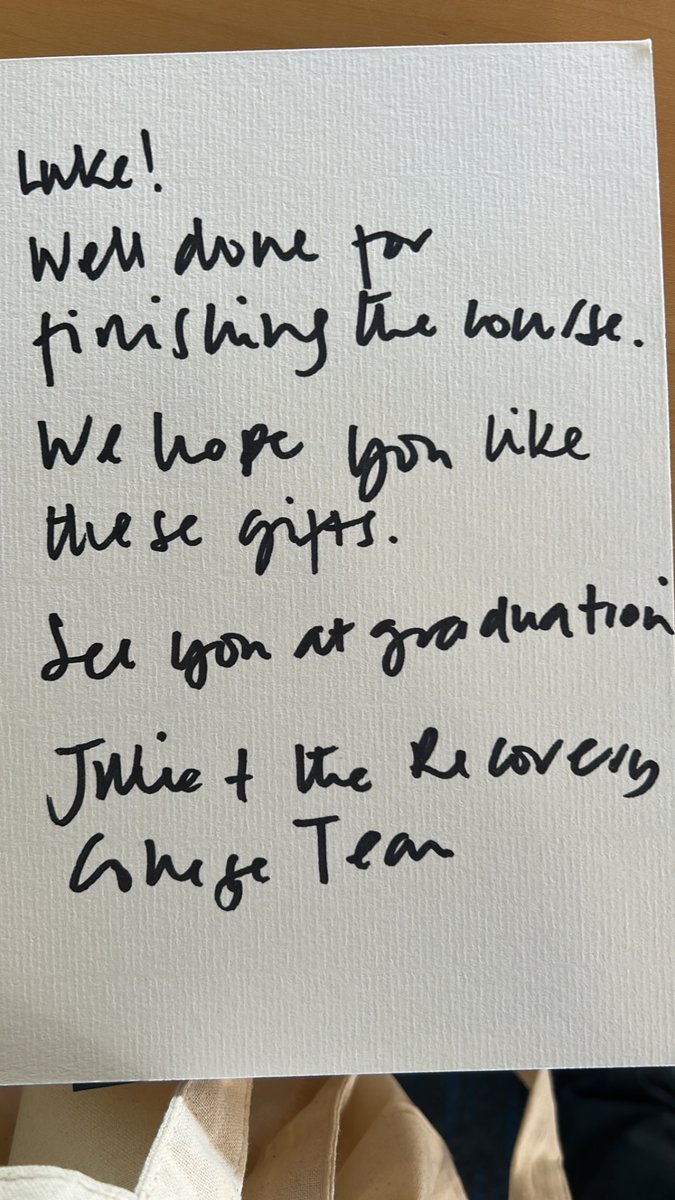 Luke!
Well done for
finishing the course.
We hope you like
these gifts.
See you at graduation
Julie + the Recovery
College Team